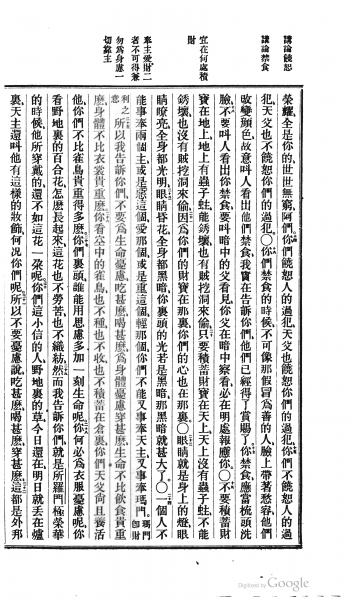 講論饒恕
講論禁食
宜在何處積
財
奉主愛財二
者不可得兼
勿爲身慮一
切靠主
榮耀全是你的世世無窮阿們你們饒恕人的過犯天父也饒恕你們的過犯你們不饒恕人的過
犯天父也不饒恕你們的過犯〇你們禁食的時候不可像那假冒爲善的人臉上帶著愁容他們
改變顏色故意叫人看出他們禁食我實在告訴你們他們已經得了賞賜了你禁食應當梳頭洗
臉不要叫人看出你禁食要叫暗中的父看見你父在暗中察看必在明處報應你〇不要積蓄財
寶在地上地上有蟲子蛀能銹壞也有賊挖洞來偷只要積蓄財寶在天上天上沒有蟲子蛀不能
銹壞也沒有賊挖洞來偷因爲你們的財寶在那裏你們的心也在那裏〇眼睛就是身上的燈眼
睛瞭亮全身都光明眼睛昏花全身都黑暗你裏頭的光若是黑暗那黑暗就甚大了〇一個人不
能事奉兩個主或是惡這個愛那個或是重這個輕那個你們不能又事奉天主又事奉瑪門瑪門卽財
利之意所以我告訴你們不要爲生命憂慮吃甚麼喝甚麼爲身體憂慮穿甚麼生命不比飲食貴重
麼身體不比衣裳貴重麼你看空中的雀鳥也不種也不收也不積蓄在倉裏你們天父尚且養活
他你們不比雀鳥貴重得多麼你們裏頭誰能用思慮多加一刻生命呢你何必爲衣服憂慮呢你
看野地裏的百合花怎麼長起來這花也不勞苦也不織紡然而我告訴你們就是所羅門極榮華
的時候他所穿戴的還不如這花一朶呢你們這小信的人野地裏的草今日還在明日就丟在爐
裏天主還叫他有這樣的妝飾何况你們呢所以不要憂慮說吃甚麼喝甚麼穿甚麼這都是外邦
Digitized by Google